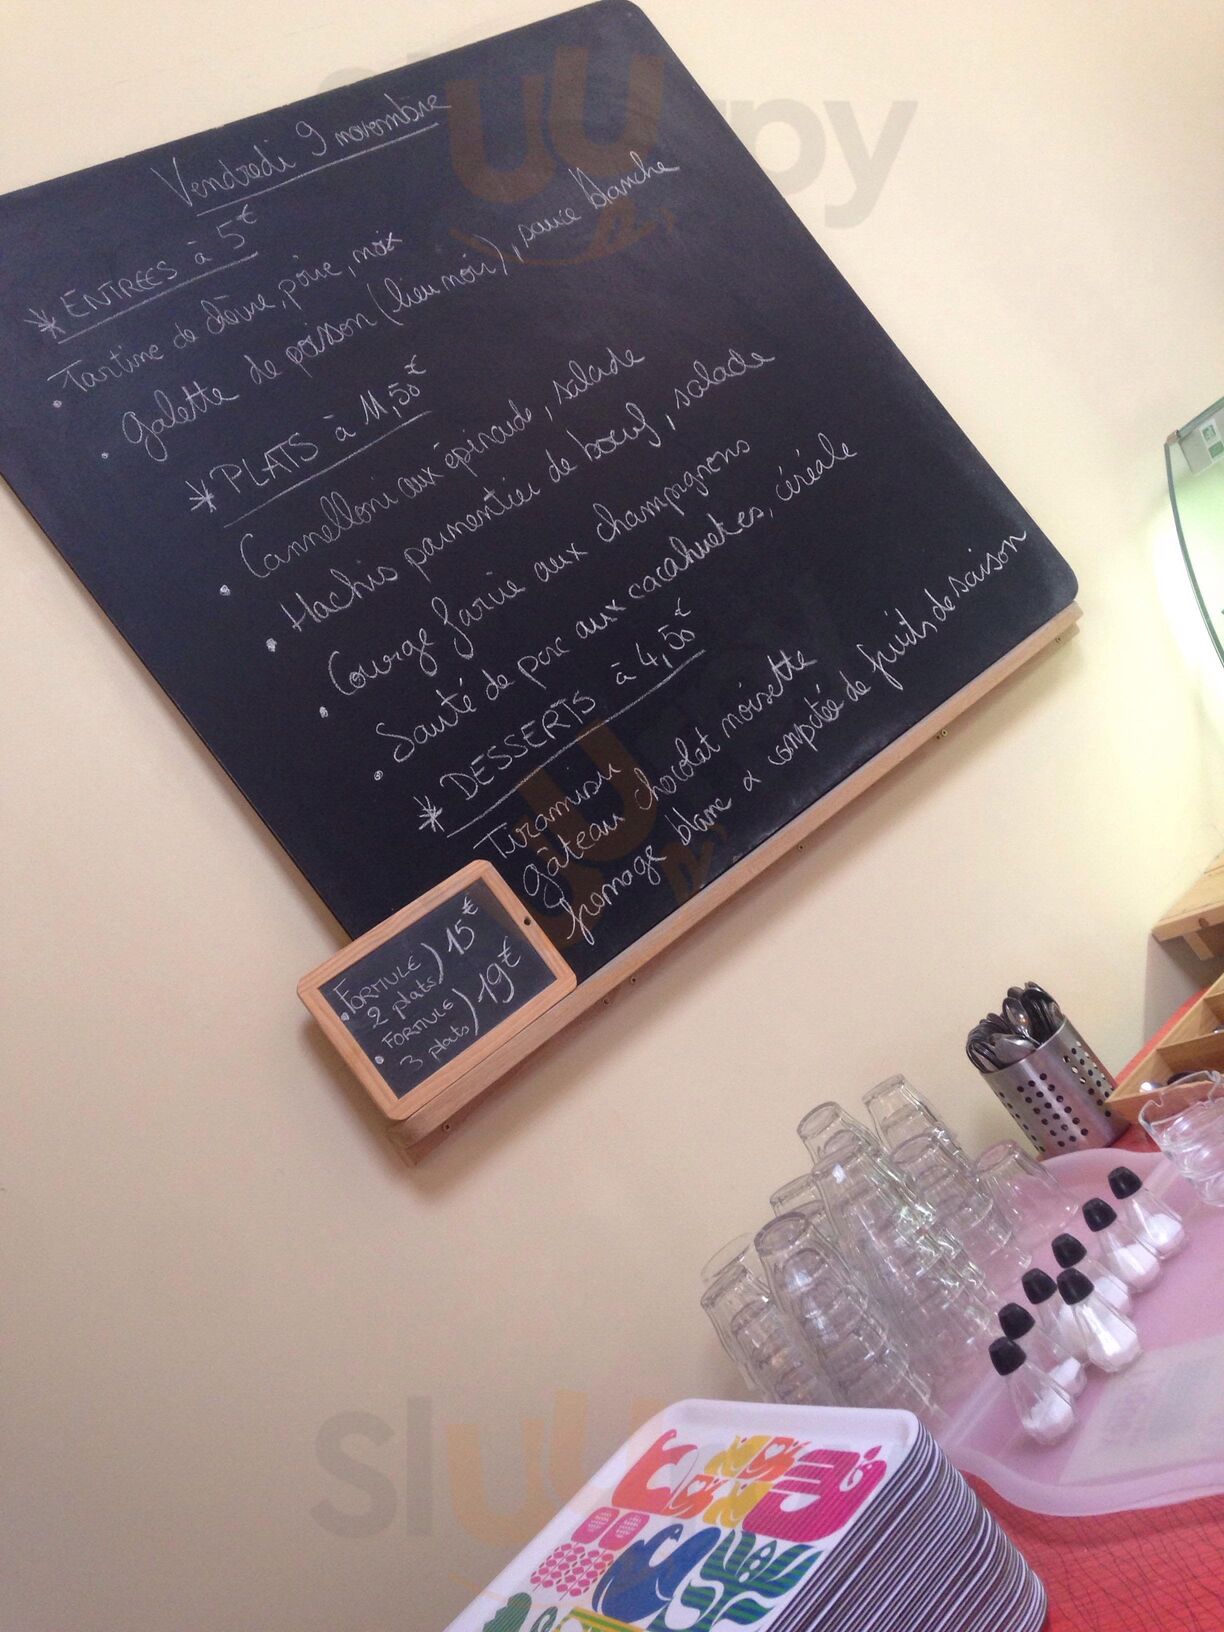 Vendredi 9 novembre
* ENTREES à 5€
• Tartine de chèvre, poire, noix
• galette de poisson (lieu noir), sauce blanche
* PLATS à 11,50€
• Cannelloni aux épinards, salade
• Hachis parmentier de boeuf, salade
• Courge farcie aux champignons
• Sauté de porc aux cacahuetes, céréale
* DESSERTS à 4,50€
Tiramisu
gâteau chocolat noisette
fromage blanc & compotée de fruits de saison
• FORMULE
2 plats) 15€
• FORMULE
3 plats) 19€
Sluurpy
Sluurpy